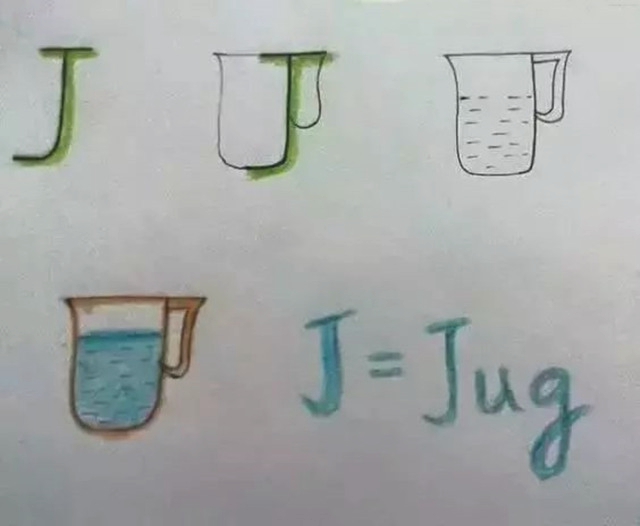 J
J = Jug